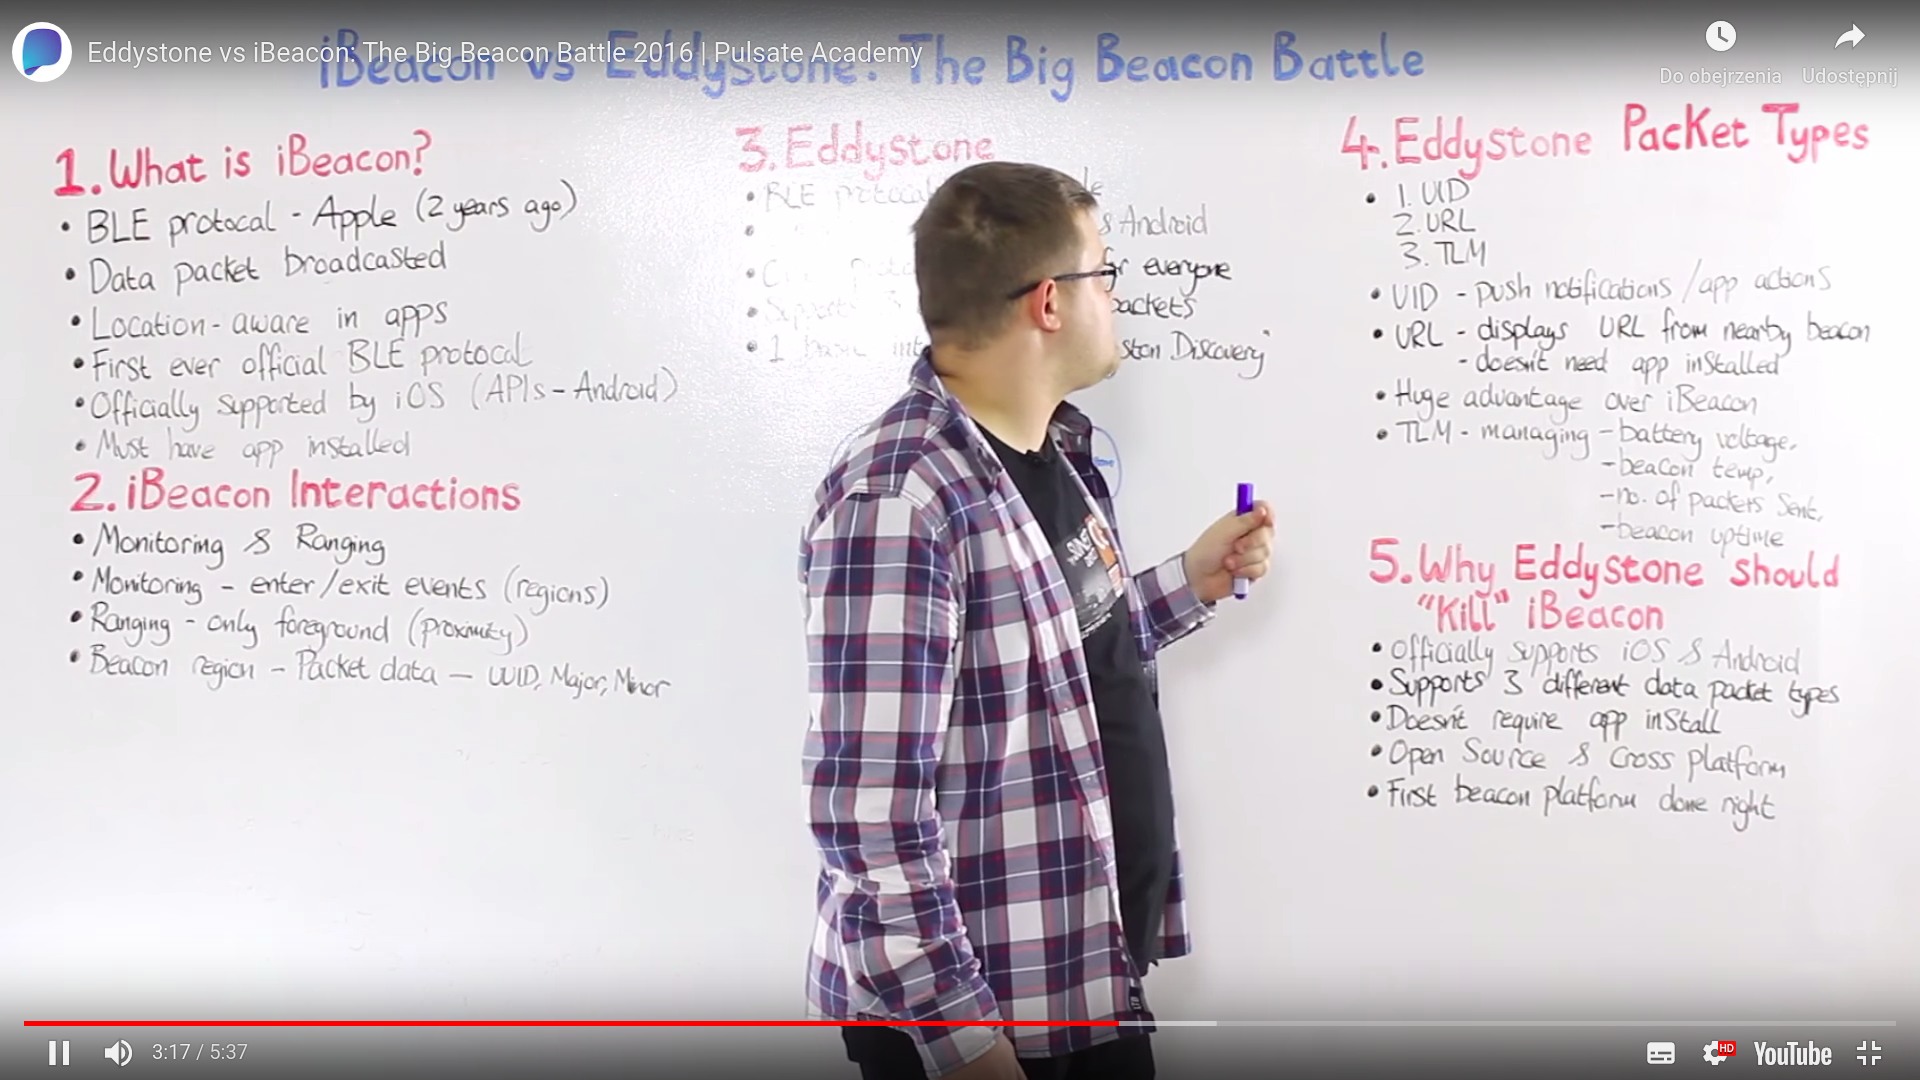 Eddystone vs iBeacon: The Big Beacon Battle 2016 | Pulsate Academy
Do obejrzenia
Udostępnij
iBeacon vs Eddystone: The Big Beacon Battle
1. What is iBeacon?
• BLE protocal - Apple (2 years ago)
• Data packet broadcasted
• Location-aware in apps
• First ever official BLE protocal
• Officially supported by iOS (APIs - Android)
• Must have app installed
2. iBeacon Interactions
• Monitoring & Ranging
• Monitoring - enter/exit events (regions)
• Ranging - only foreground (proximity)
• Beacon region - Packet data - UUID, Major, Minor
3. Eddystone
• BLE protocal
• & Android
• for everyone
• Supports 3 packets
• 1 basic Discovery"
4. Eddystone Packet Types
• 1. UID
2. URL
3. TLM
• UID - push notifications / app actions
• URL - displays URL from nearby beacon
- doesn't need app installed
• Huge advantage over iBeacon
• TLM - managing - battery voltage,
- beacon temp,
- no. of packets sent,
- beacon uptime
5. Why Eddystone should
"Kill" iBeacon
• Officially supports iOS & Android
• Supports 3 different data packet types
• Doesn't require app install
• Open Source & Cross platform
• First beacon platform done right
3:17 / 5:37
HD
YouTube